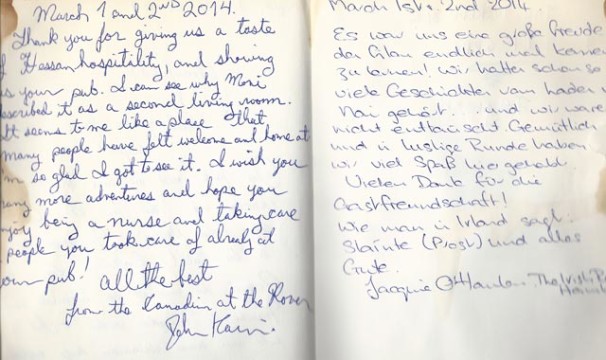 March 1 and 2ND 2014.
Thank you for giving us a taste
Hassan hospitility, and showing
us your pub. I can see why Moni
scribed it as a second living room.
It seems to me like a place that
many people have felt welcome and home at
so glad I got to see it. I wish you
many more adventures and hope you
joy being a nurse and taking care
people you took care of already at
own pub! All the best
from the Canadian at the
John
March 1st + 2nd 2014.
Es war uns eine große Freude
den endlich mal kennen
zu lernen! Wir hatten schon so
viele Geschichten vom
gehört... und wir waren
nicht enttäuscht. Gemütlich
und in lustige Runde haben
wir viel Spaß hier gehabt.
Vielen Dank für die
Gastfreundschaft!
Wie man in Irland sagt:
Slainte (Prost) und alles
Gute.
Jacquie O'Hanlon. The Irish